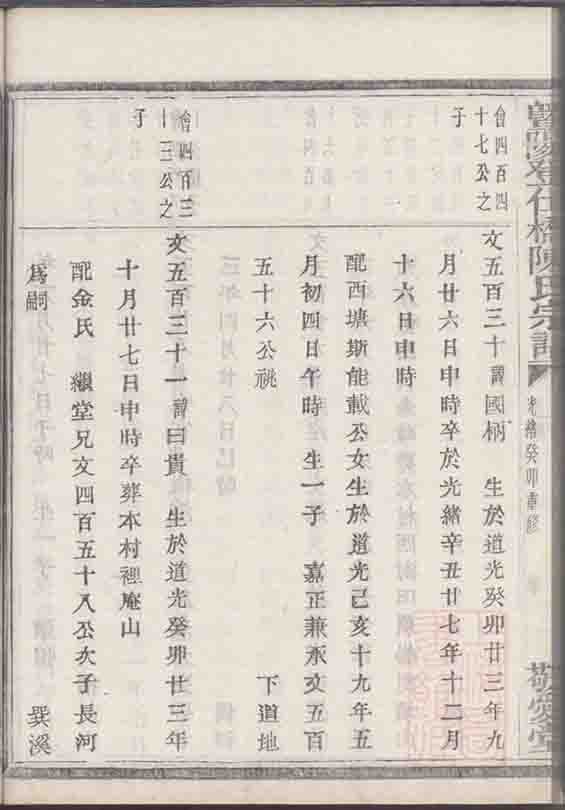 陳氏宗譜
光緒癸卯重修
敬愛堂
會四百四
十七公之
子
文五百三十 諱國柄 生於道光癸卯廿三年九
月廿六日申時卒於光緒辛丑廿七年十二月
十六日申時
配西塘斯能載公女生於道光己亥十九年五
月初四日午時 生一子 嘉正兼承文五百
五十六公祧 下道地
會四百三
十三公之
子
文五百三十一諱曰貴 生於道光癸卯廿三年
十月廿七日申時卒葬本村裡庵山
配金氏 繼堂兄文四百五十八公次子長河
爲嗣 巽溪